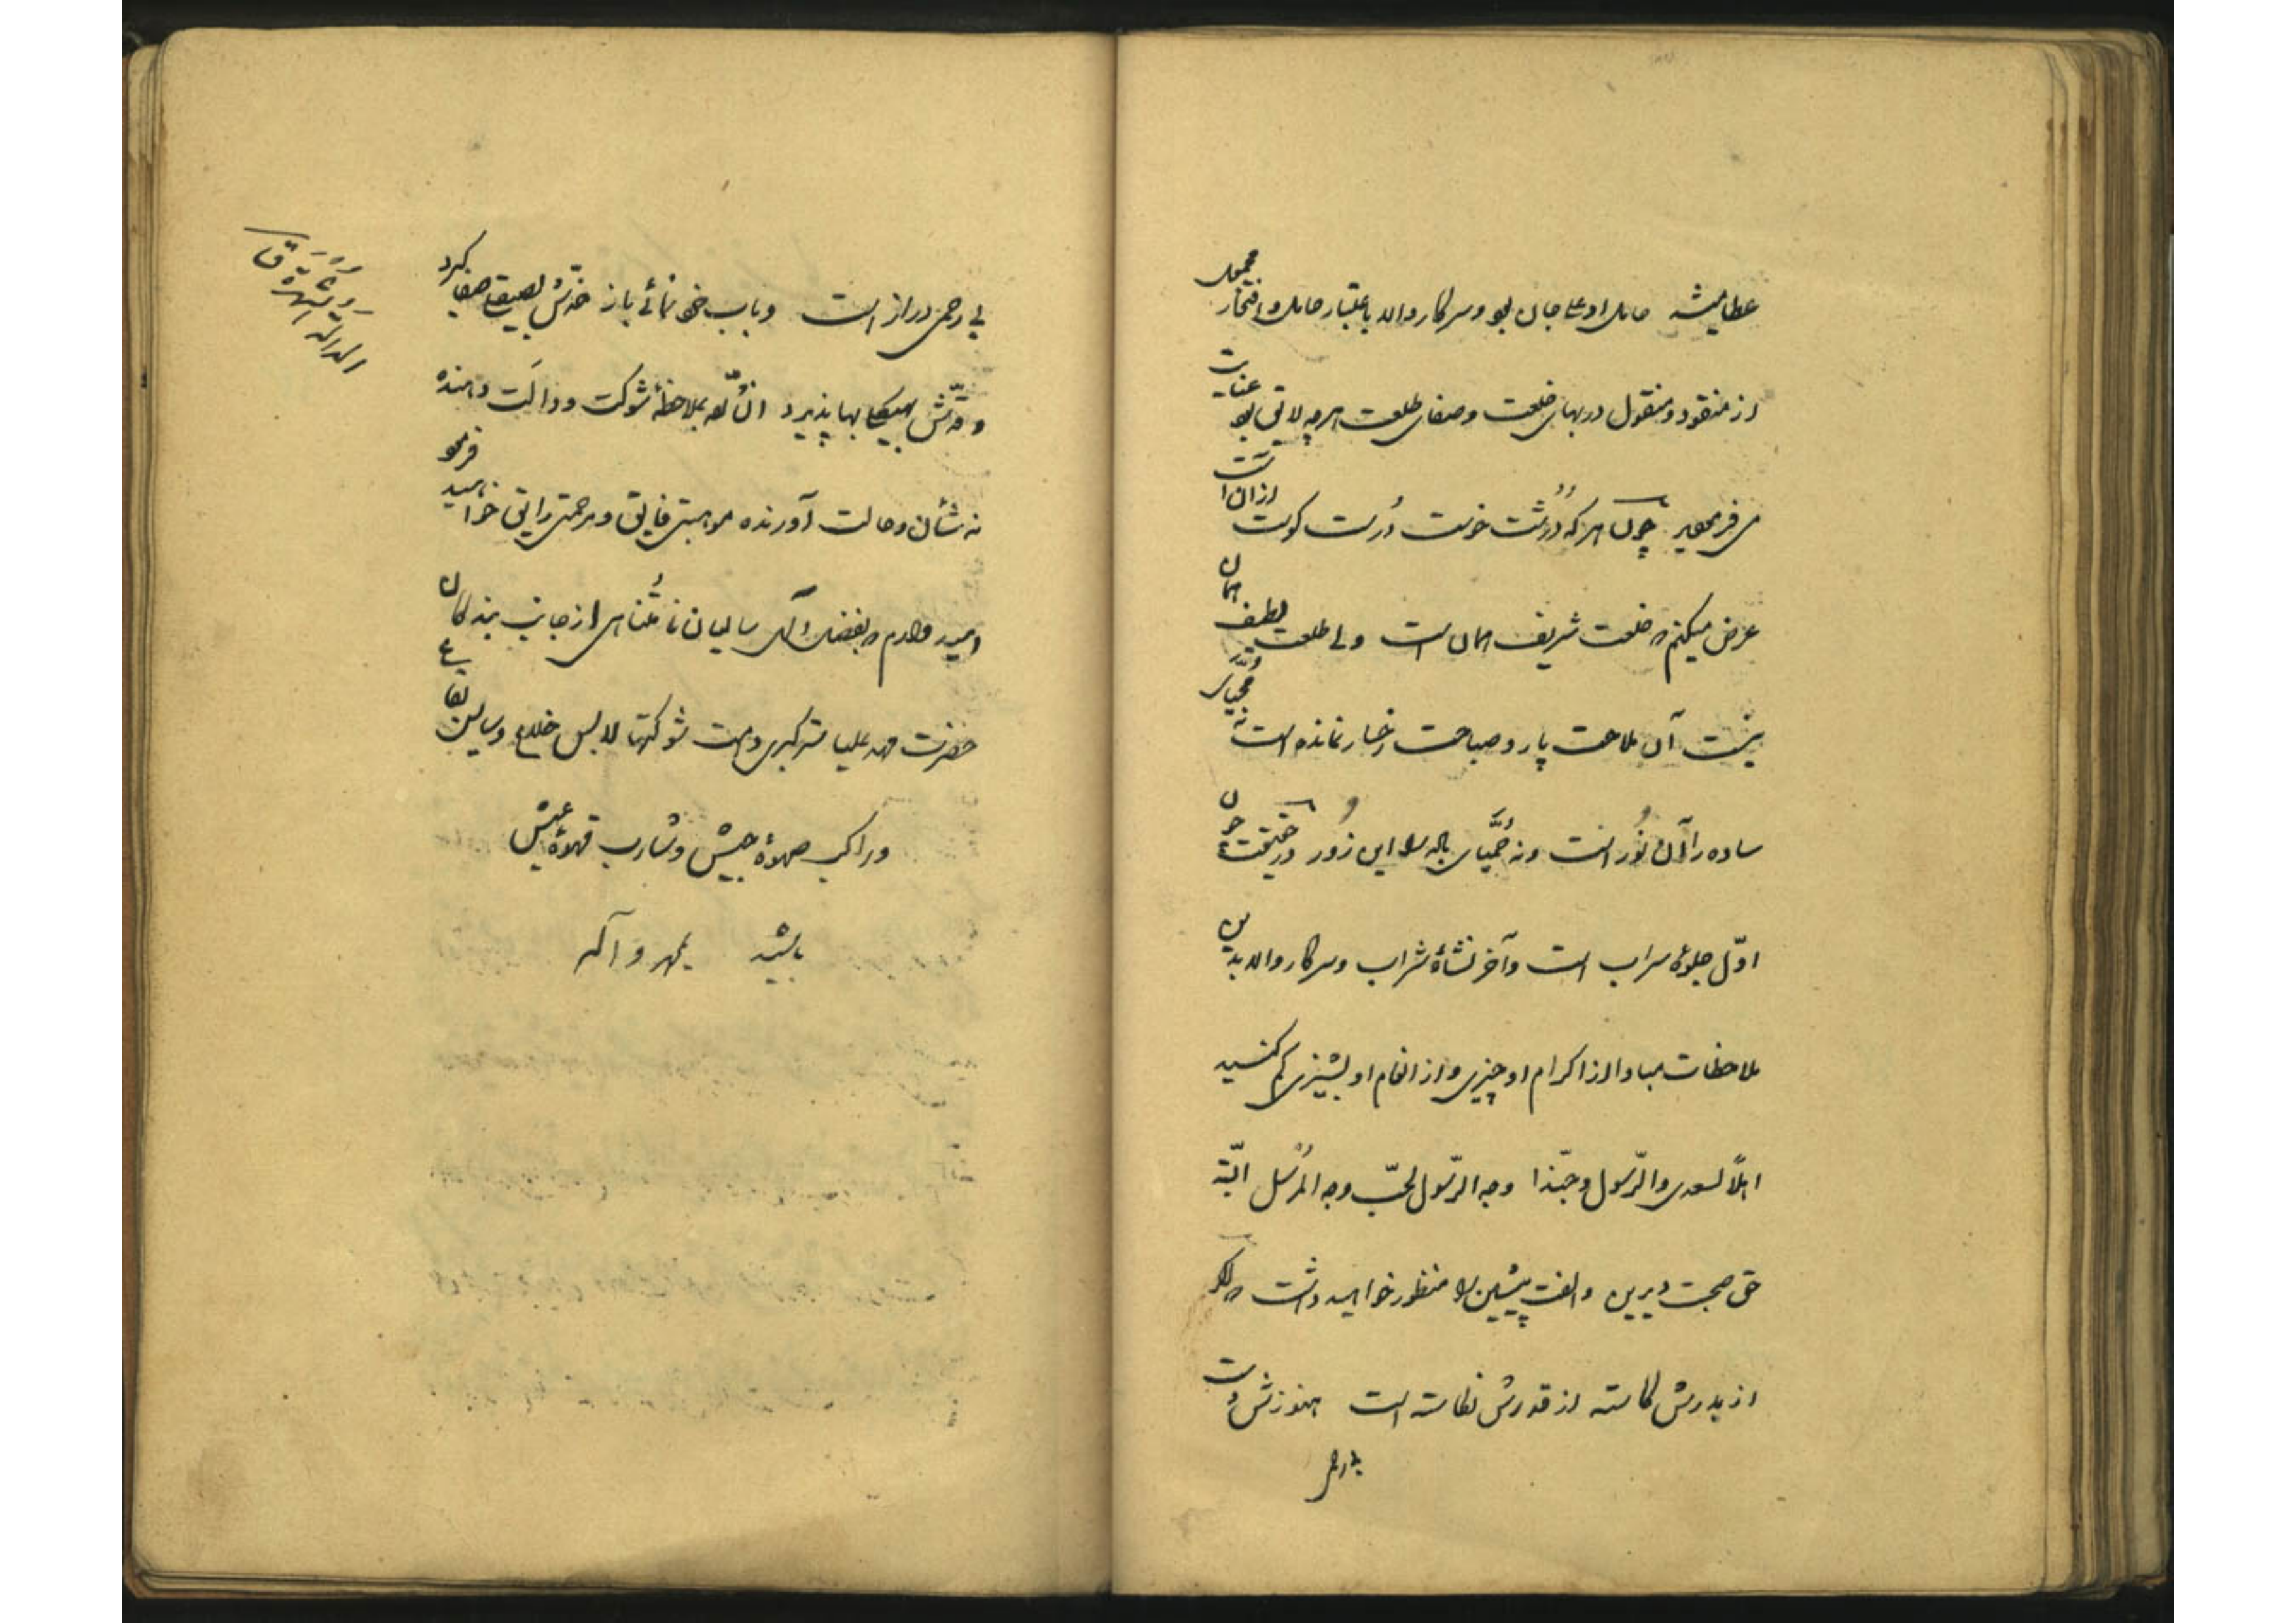 عطایش حامل او علی جان بود و سرکار والد باعتبار حامل و افتخار محمول
از منقود و منقول در بهای خلعت و صفای طلعت هر چه لایق بود عنایت
می‌فرمودید چون هر که دُرُشت خوست دُرست کوست از آنست
عرض میکنم که خلعت شریف همان است ولی طلعت لطیف همان
نیست آن ملاحت پار و صباحت رخسار نمانده است نه مُحیّای
ساده را آن نُور است و نه حُمیّای باده را این زُور در حقیقت چون
اوّل جلوهٔ سراب است و آخر نشأهٔ شراب و سرکار والد بدین
ملاحظات مبادا از اکرام او چیزی و از انعام او پشیزی کم کنید
اهلاً لسعدی والرّسول وحبّذا وجه الرّسول لحبّ وجه المُرسل البتّه
حق صحبت دیرین و الفت پیشین را منظور خواهید داشت که اگر
از بدرش کاسته از قدرش نکاسته است هنوزش دست
بی‌رحمی
بی‌رحمی دراز است و باب خودنمائی باز خدّش بصیقلی صفا گیرد
و قدّش بهیکلی بها پذیرد ان شاء الله بملاحظهٔ شوکت و دولت دهنده
نه شأن و حالت آورنده موهبتی فایق و مرحمتی رایق خواهید فرمود
امیدوارم که بفضل الهی سالیان نامُتناهی از جانب بندکان
حضرت مهد علیا ستر کبری دامت شوکتها لابس خلاع و سایس بقاع
و راکب صهوهٔ جیش و شارب قهوهٔ عیش
باشید بمحمد و آله